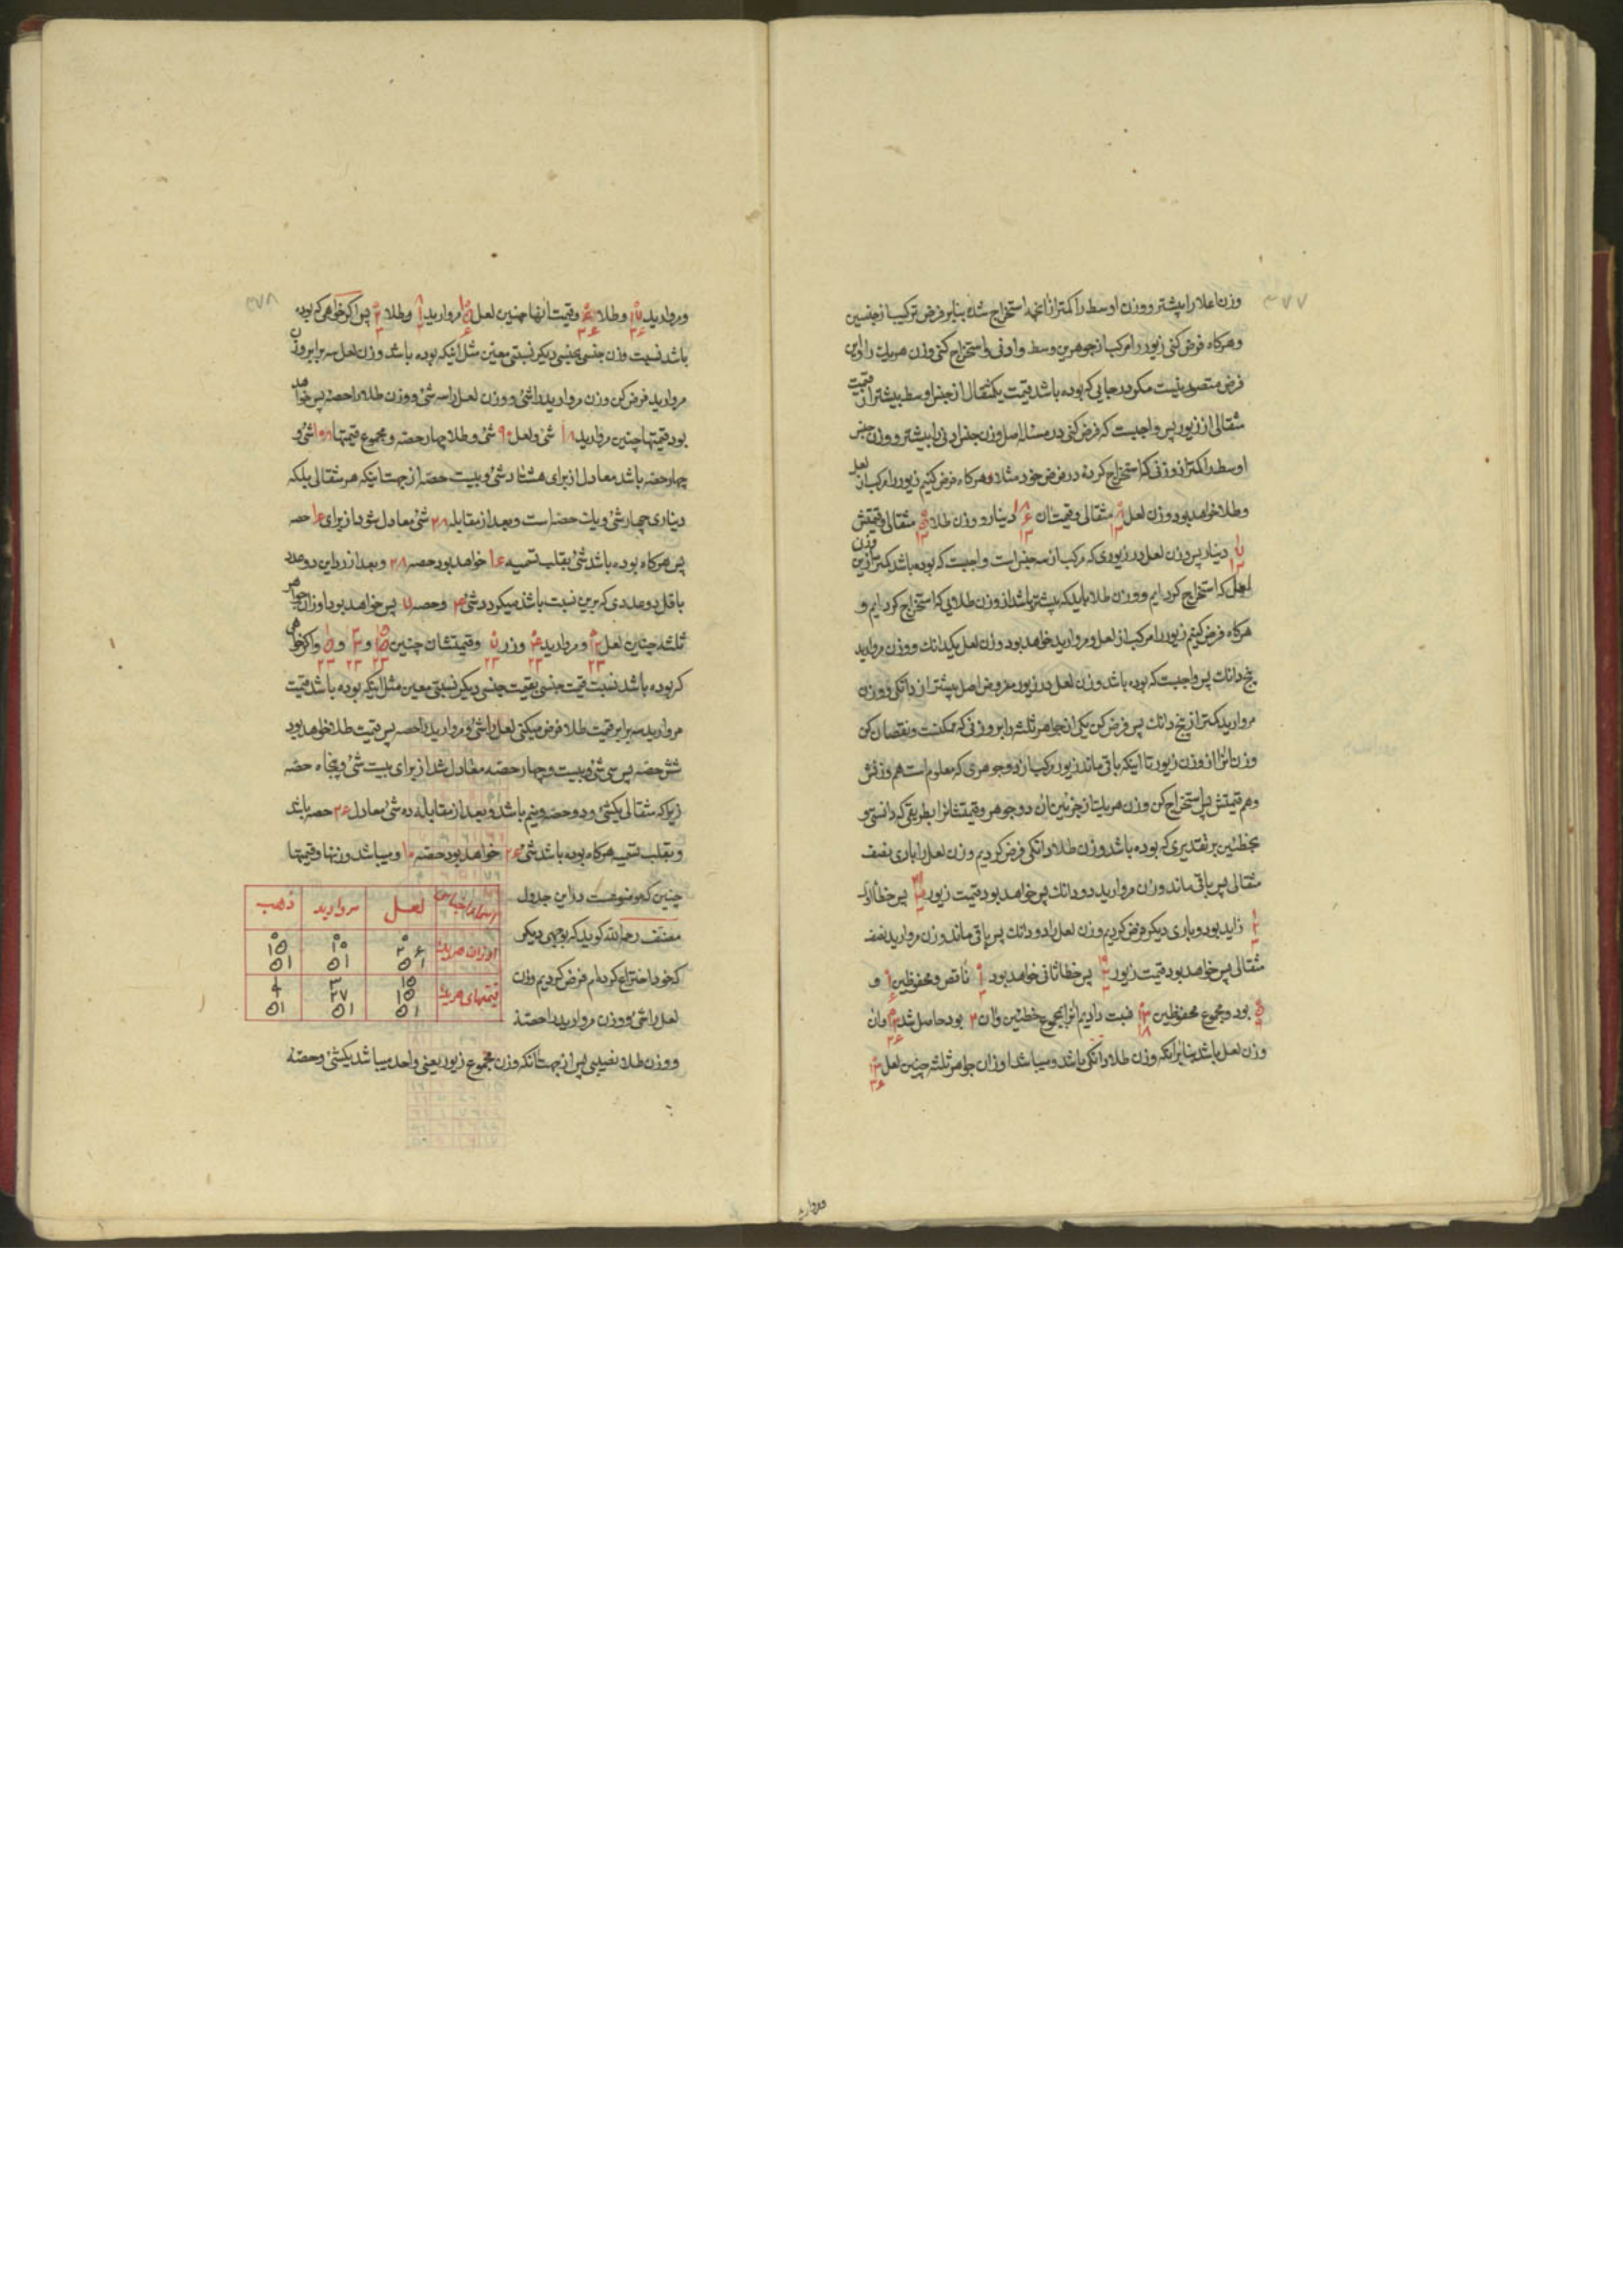 ۳۷۷
وزن اعلا را بیشتر و وزن اوسط را کمتر از آنچه استخراج شده بنا بر فرض ترکیب از جنسین
و هرکاه فرض کنی زیور را مرکب از جوهرین وسط و ادنی و استخراج کنی وزن هریك را و این
فرض متصور نیست مکر در جایی که بوده باشد قیمت یکمثقال از جنس اوسط بیشتر از قیمت
مثقالی از زیور پس واجبست که فرض کنی در مسئله اصل وزن جنس ادنی را بیشتر و وزن جنس
اوسط را کمتر از وزنی که استخراج کرده در فرض خود مثلا و هرکاه فرض کنیم زیور را مرکب از لعل
و طلا خواهد بود وزن لعل مثقالی و قیمت ان دینار و وزن طلا مثقالی و قیمتش
دینار پس وزن لعل در زیوری که مرکب از سه جنس است واجبست که بوده باشد کمتر از این وزن
لعل که استخراج کرده ایم و وزن طلا باید که بیشتر باشد از وزن طلایی که استخراج کرده ایم و
هرکاه فرض کنیم زیور را مرکب از لعل و مروارید خواهد بود وزن لعل یکدانك و وزن مروارید
پنج دانك پس واجبست که بوده باشد وزن لعل در زیور مفروض اصل بیشتر از دانکی و وزن
مروارید کمتر از پنج دانك پس فرض کن یکی از جواهر ثلثه را بر وزنی که ممکنست و نقصان کن
وزن انرا از وزن زیور تا اینکه باقی ماند زیور مرکب از دو جوهری که معلوم است هم وزنش
و هم قیمتش پس استخراج کن وزن هریك از جزئین ان دو جوهر و قیمتشانرا بطریقی که دانستی و
بخطئین بر تقدیری که بوده باشد وزن طلا دانکی فرض کردیم وزن لعل را باری نصف
مثقالی پس باقی ماند وزن مروارید دو دانك پس خواهد بود قیمت زیور پس خطأ اول
زاید بود و باری دیکر فرض کردیم وزن لعل را دو دانك پس باقی ماند وزن مروارید نصف
مثقالی پس خواهد بود قیمت زیور پس خطا ثانی خواهد بود ناقص و محفوظین و
بود و مجموع محفوظین نسبت دادیم انرا بمجموع خطئین و ان ۳ بود حاصل شد و ان
وزن لعل باشد بنا برانکه وزن طلا دانکی باشد و میباشد اوزان جواهر ثلثه چنین لعل ۱۳ ۳۶
مروارید
۳۷۸
و مروارید و طلا و قیمت انها چنین لعل مروارید و طلا پس اکر خواهی که بوده
باشد نسبت وزن جنسی بجنسی دیکر نسبتی معین مثل اینکه بوده باشد وزن لعل سه برابر وزن
مروارید فرض کن وزن مروارید را شئ و وزن لعل را سه شئ و وزن طلا را حصه پس خواهد
بود قیمتها چنین مروارید ۱۸ شئ و لعل ۹۰ شئ و طلا چهار حصه و مجموع قیمتها ۱۰۸ شئ و
چهار حصه باشد معادل از برای هشتاد شئ و بیست حصه از جهت اینکه هر مثقالی بلکه
دیناری چهار شئ و یك حصه است و بعد از مقابله ۲۸ شئ معادل شود از برای ۱۶ حصه
پس هرکاه بوده باشد شئ بقلب تسمیه ۱۶ خواهد بود حصه ۲۸ و بعد از رد این دو عدد
باقل دو عددی که برین نسبت باشد میکردد شئ ۴ و حصه ۷ پس خواهد بود اوزان جواهر
ثلثه چنین لعل و مروارید و زر و قیمتشان چنین و و و اکر خواهی
که بوده باشد نسبت قیمت جنسی بقیمت جنسی دیکر نسبتی معین مثل اینکه بوده باشد قیمت
مروارید سه برابر قیمت طلا فرض میکنی لعل را شئ و مروارید را حصه پس قیمت طلا خواهد بود
شش حصه پس سی شئ و بیست و چهار حصه معادل شد از برای بیست شئ و پنجاه حصه
زیرا که مثقالی یکشئ و دو حصه و نیم باشد و بعد از مقابله ده شئ معادل ۲۶ حصه باشد
و بقلب تسمیه هرکاه بوده باشد شئ ۲۶ خواهد بود حصه ۱۰ و میباشد وزنها و قیمتها
چنین که موضوعست در این جدول
مصنف رحمه الله کوید که بوجهی دیکر
که خود اختراع کرده ام فرض کردیم وزن
لعل را شئ و وزن مروارید را حصة
و وزن طلا نصیبی پس از جهت انکه وزن مجموع زیور یعنی واحد میباشد یکشئ و حصة
لعل مروارید ذهب
اوزان هریك ۲۶ ۵۱ ۱۰ ۵۱ ۱۵ ۵۱
قیمتهای هریك ۱۵ ۱۵ ۵۱ ۳ ۲۷ ۵۱ ۱ ۹ ۵۱